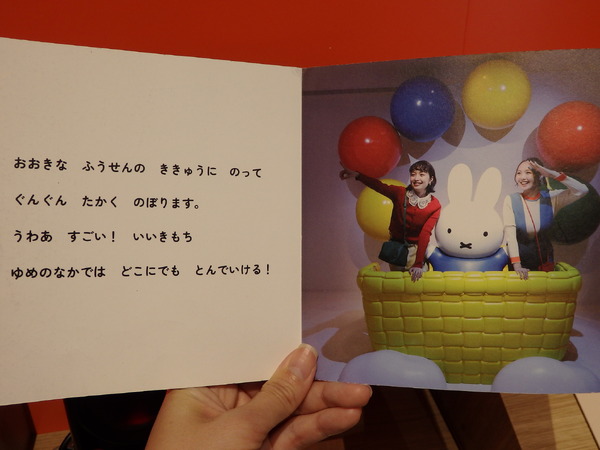 おおきな　ふうせんの　ききゅうに　のって
ぐんぐん　たかく　のぼります。
うわあ　すごい！　いいきもち
ゆめのなかでは　どこにでも　とんでいける！